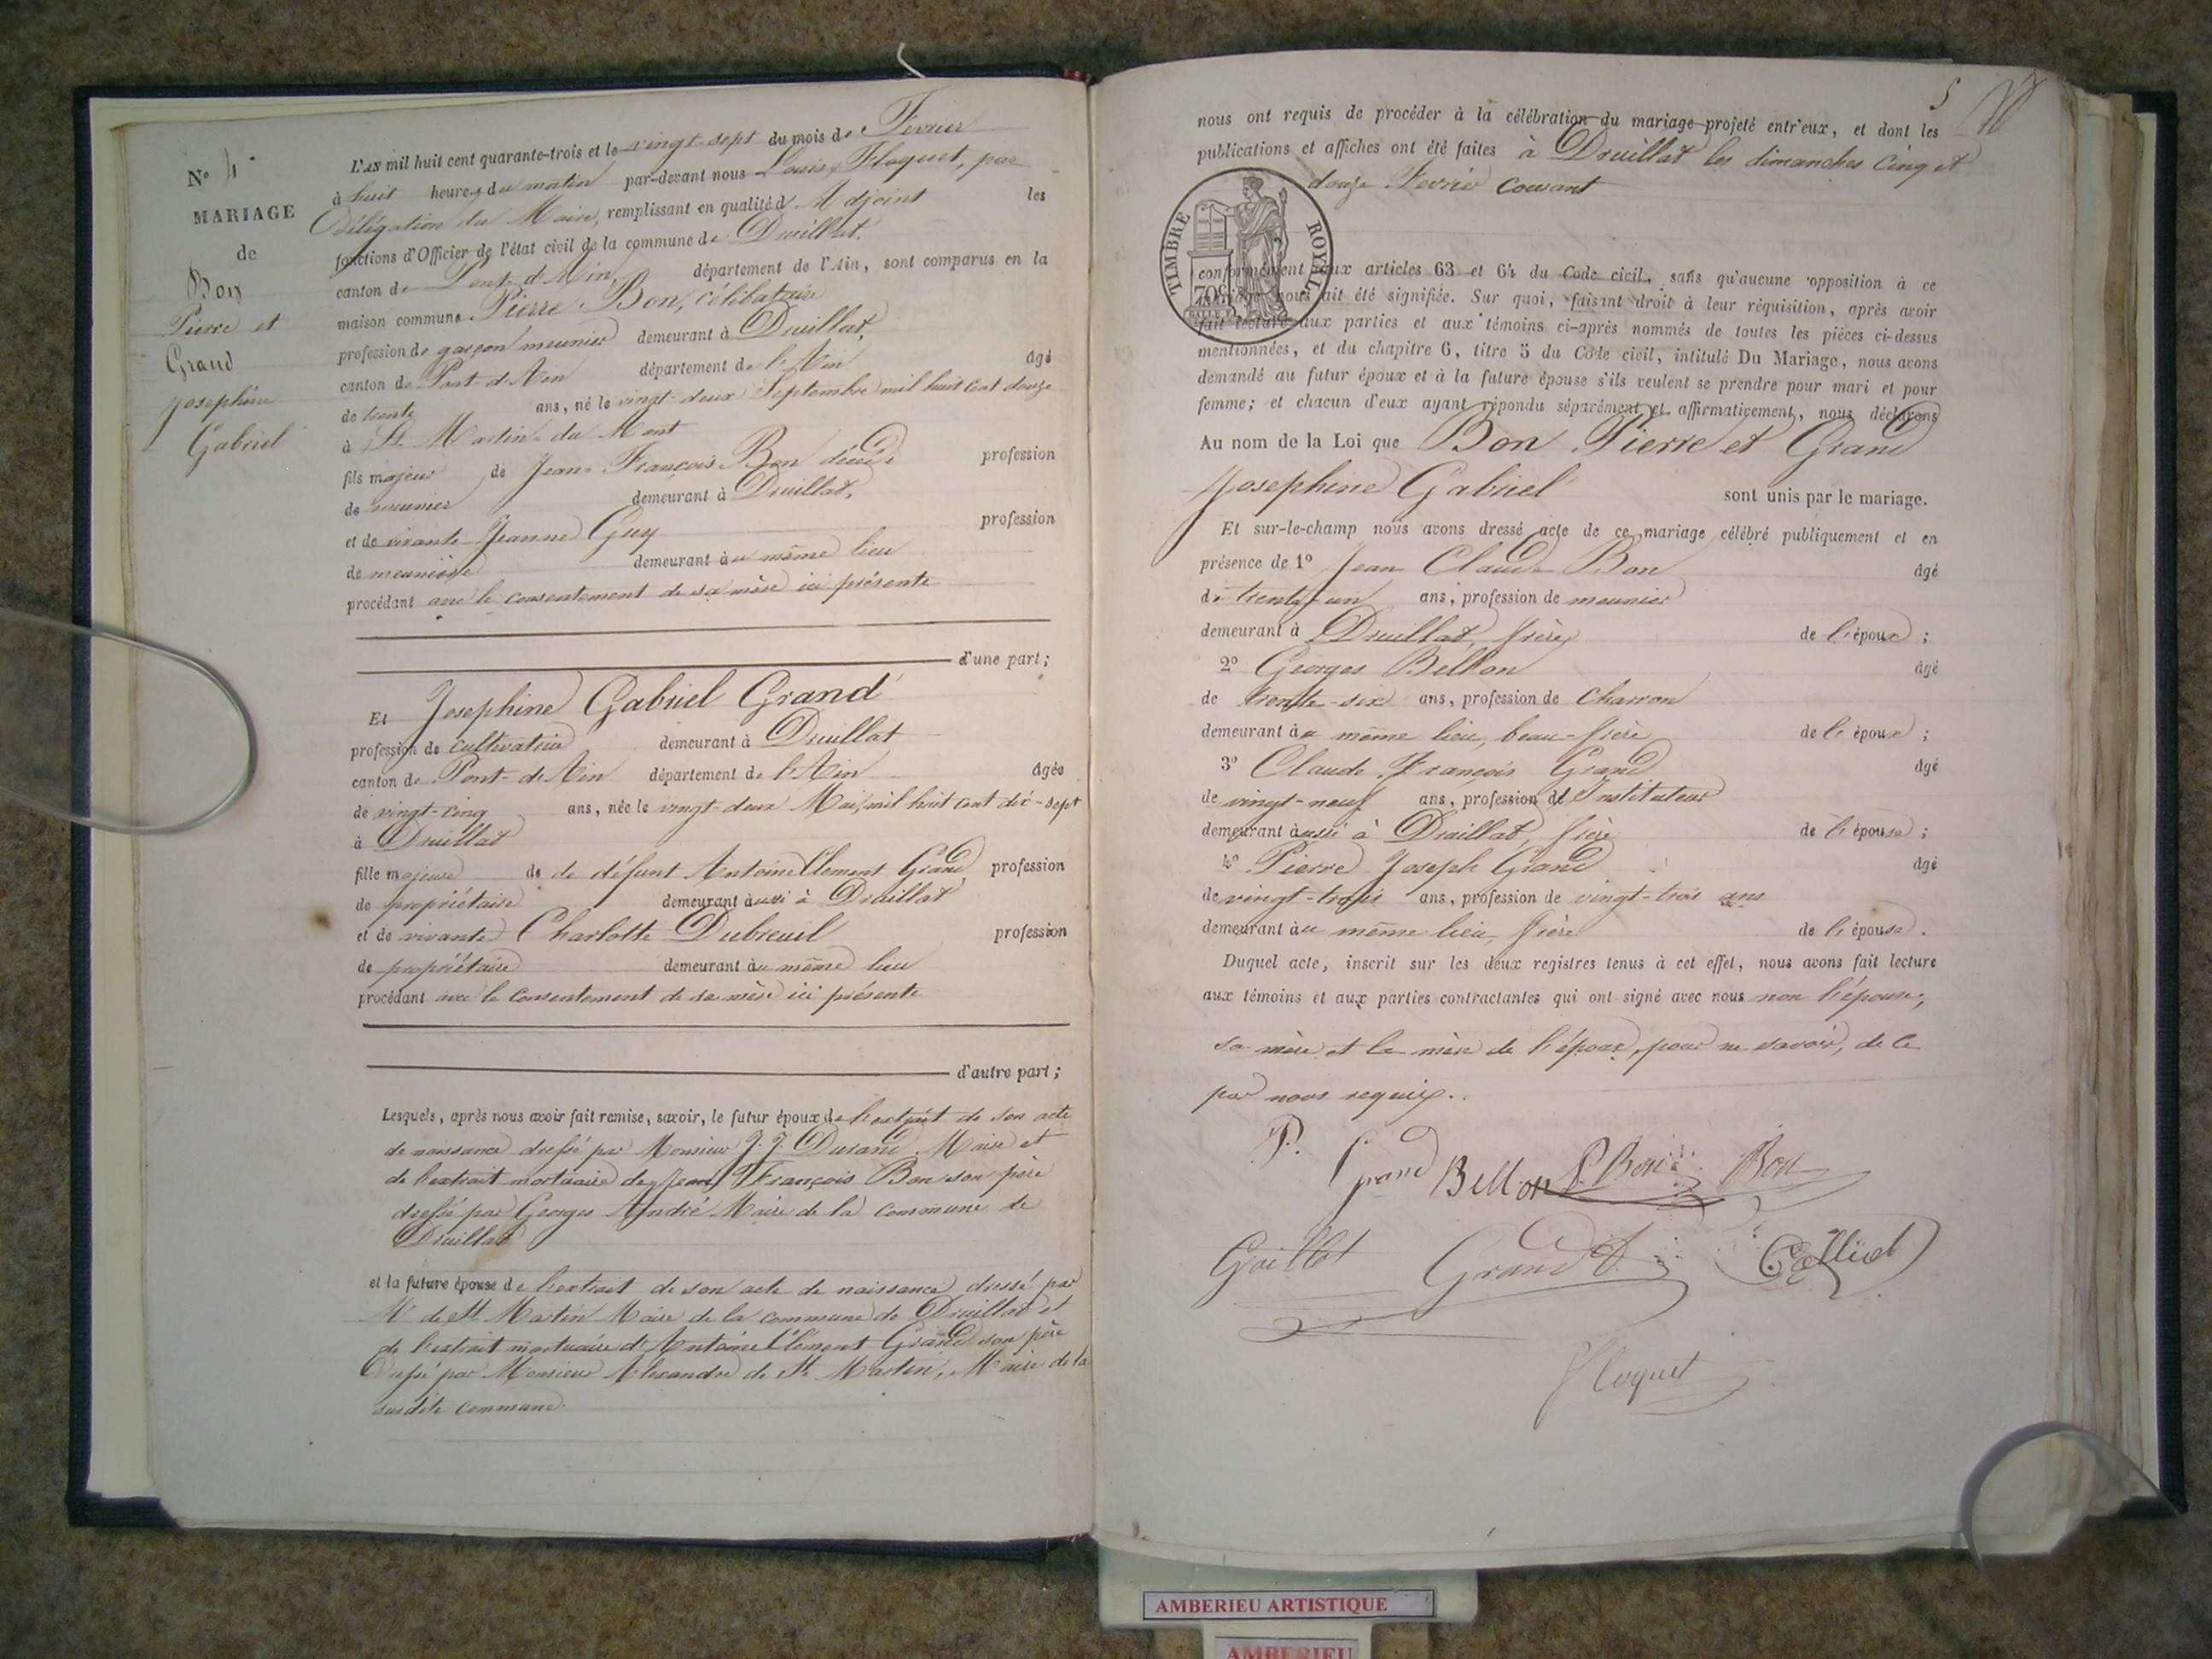 N° 4
MARIAGE
de
Bon
Pierre et
Grand
Josephine
Gabriel
L'AN mil huit cent quarante-trois et le vingt-sept du mois de Fevrier
à huit heures du matin par-devant nous Louis Floquet, par
Délégation du Maire, remplissant en qualité d'Adjoint les
fonctions d'Officier de l'état civil de la commune de Druillat,
canton de Pont-d'Ain, département de l'Ain, sont comparus en la
maison commune Pierre Bon, célibataire
profession de garçon meunier demeurant à Druillat,
canton de Pont-d'Ain département de l'Ain âgé
de trente ans, né le vingt-deux Septembre mil huit cent douze
à St. Martin-du Mont
fils majeur de Jean-François Bon décédé profession
de meunier demeurant à Druillat,
et de vivante Jeanne Guy profession
de meunière demeurant au même lieu
procédant avec le consentement de sa mère ici présente
d'une part;
Et Josephine Gabriel Grand
profession de cultivatrice demeurant à Druillat
canton de Pont-d'Ain département de l'Ain âgée
de vingt-cinq ans, née le vingt-deux Mai, mil huit cent dix-sept
à Druillat
fille majeure de de défunt Antoine Clément Grand profession
de propriétaire demeurant aussi à Druillat
et de vivante Charlotte Dubreuil profession
de propriétaire demeurant au même lieu
procédant avec le consentement de sa mère ici présente
d'autre part;
Lesquels, après nous avoir fait remise, savoir, le futur époux de l'extrait de son acte
de naissance dressé par Monsieur J. J. Durand Maire et
de l'extrait mortuaire de Jean François Bon son père
dressé par Georges André Maire de la commune de
Druillat
et la future épouse de l'extrait de son acte de naissance dressé par
Mr de St. Martin Maire de la commune de Druillat et
de l'extrait mortuaire d'Antoine Clément Grand son père
Dressé par Monsieur Alexandre de St. Martin, Maire de la
susdite commune.
5
nous ont requis de procéder à la célébration du mariage projeté entr'eux, et dont les
publications et affiches ont été faites à Druillat les dimanches Cinq et
douze Fevrier Courant
TIMBRE ROYAL
70
conformément aux articles 63 et 64 du Code civil, sans qu'aucune opposition à ce
mariage nous ait été signifiée. Sur quoi, faisant droit à leur réquisition, après avoir
fait lecture aux parties et aux témoins ci-après nommés de toutes les pièces ci-dessus
mentionnées, et du chapitre 6, titre 5 du Code civil, intitulé Du Mariage, nous avons
demandé au futur époux et à la future épouse s'ils veulent se prendre pour mari et pour
femme; et chacun d'eux ayant répondu séparément et affirmativement, nous déclarons
Au nom de la Loi que Bon Pierre et Grand
Josephine Gabriel sont unis par le mariage.
Et sur-le-champ nous avons dressé acte de ce mariage célébré publiquement et en
présence de 1° Jean Claude Bon âgé
de trente-un ans, profession de meunier
demeurant à Druillat, frère de l'époux ;
2° Georges Bellon âgé
de trente-six ans, profession de Charron
demeurant au même lieu, beau-frère de l'époux ;
3° Claude François Grand âgé
de vingt-neuf ans, profession d'Instituteur
demeurant aussi à Druillat, frère de l'épouse ;
4° Pierre Joseph Grand âgé
de vingt-trois ans, profession de vingt-trois ans
demeurant au même lieu, frère de l'épouse.
Duquel acte, inscrit sur les deux registres tenus à cet effet, nous avons fait lecture
aux témoins et aux parties contractantes qui ont signé avec nous non l'épouse,
sa mère et la mère de l'époux, pour ne savoir, de ce
par nous requis..
P. Grand Bellon P. Bon Bon
Gaillet Grand
Floquet
AMBERIEU ARTISTIQUE
AMBERIEU